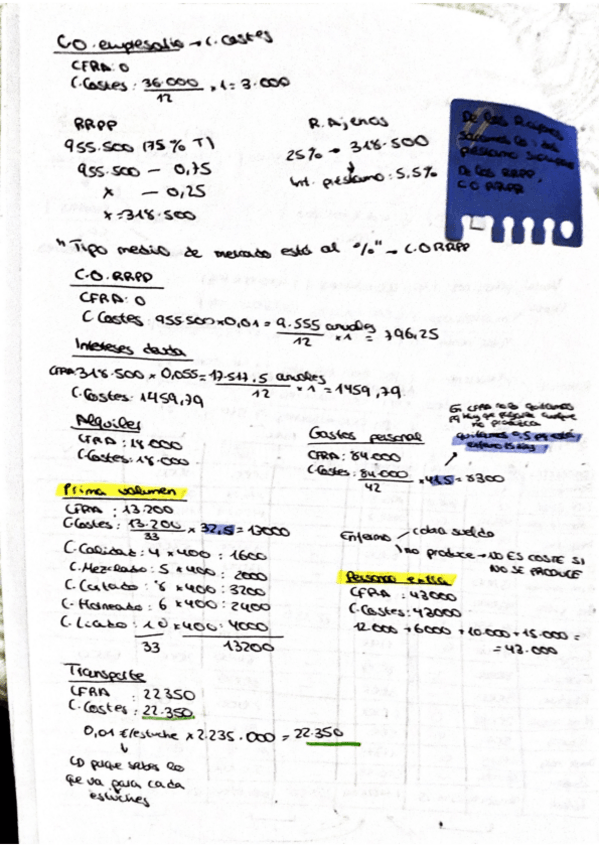 C.O. empresario → C. Costes
CFRA: 0
C. Costes: 36.000/12 × 1 = 3.000
RRPP
955.500 (75% T)
955.500 — 0,75
x — 0,25
x = 318.500
R. Ajenos
25% → 318.500
Int. préstamo: 5,5%
De los R. ajenos
préstamo siempre
De los RRPP,
C.O RRPP
"Tipo medio de mercado está al %" → C.O RRPP
C.O. RRPP
CFRA: 0
C. Costes: 955.500 × 0,01 = 9.555 anuales/12 × 1 = 796,25
Intereses deuda
CFRA: 318.500 × 0,055 = 17.517,5 anuales/12 × 1 = 1459,79
C. Costes: 1459,79
Alquiler
CFRA: 18.000
C. Costes: 18.000
En CFRA no lo quitamos
pq hay que pagarle aunque
no produzca
quitamos 0,5 pq está
enfermo 15 días
Gastos personal
CFRA: 84.000
C. Costes: 84.000/42 × 41,5 = 8300
Prima volumen
CFRA: 13.200
C. Costes: 13.200/33 × 32,5 = 13000
C. Calidad: 4 × 400: 1600
C. Mezclado: 5 × 400: 2000
C. Cortado: 8 × 400: 3200
C. Horneado: 6 × 400: 2400
C. Liado: 10 × 400: 4000
33 13200
Enfermo cobra sueldo
no produce → NO ES COSTE SI
NO SE PRODUCE
Persona extra
CFRA: 43000
C. Costes: 43000
12.000 + 6000 + 10.000 + 15.000 =
= 43.000
Transporte
CFRA: 22350
C. Costes: 22.350
0,01 €/estuche × 2.235.000 = 22.350
CD porque sabes lo
que va para cada
estuches